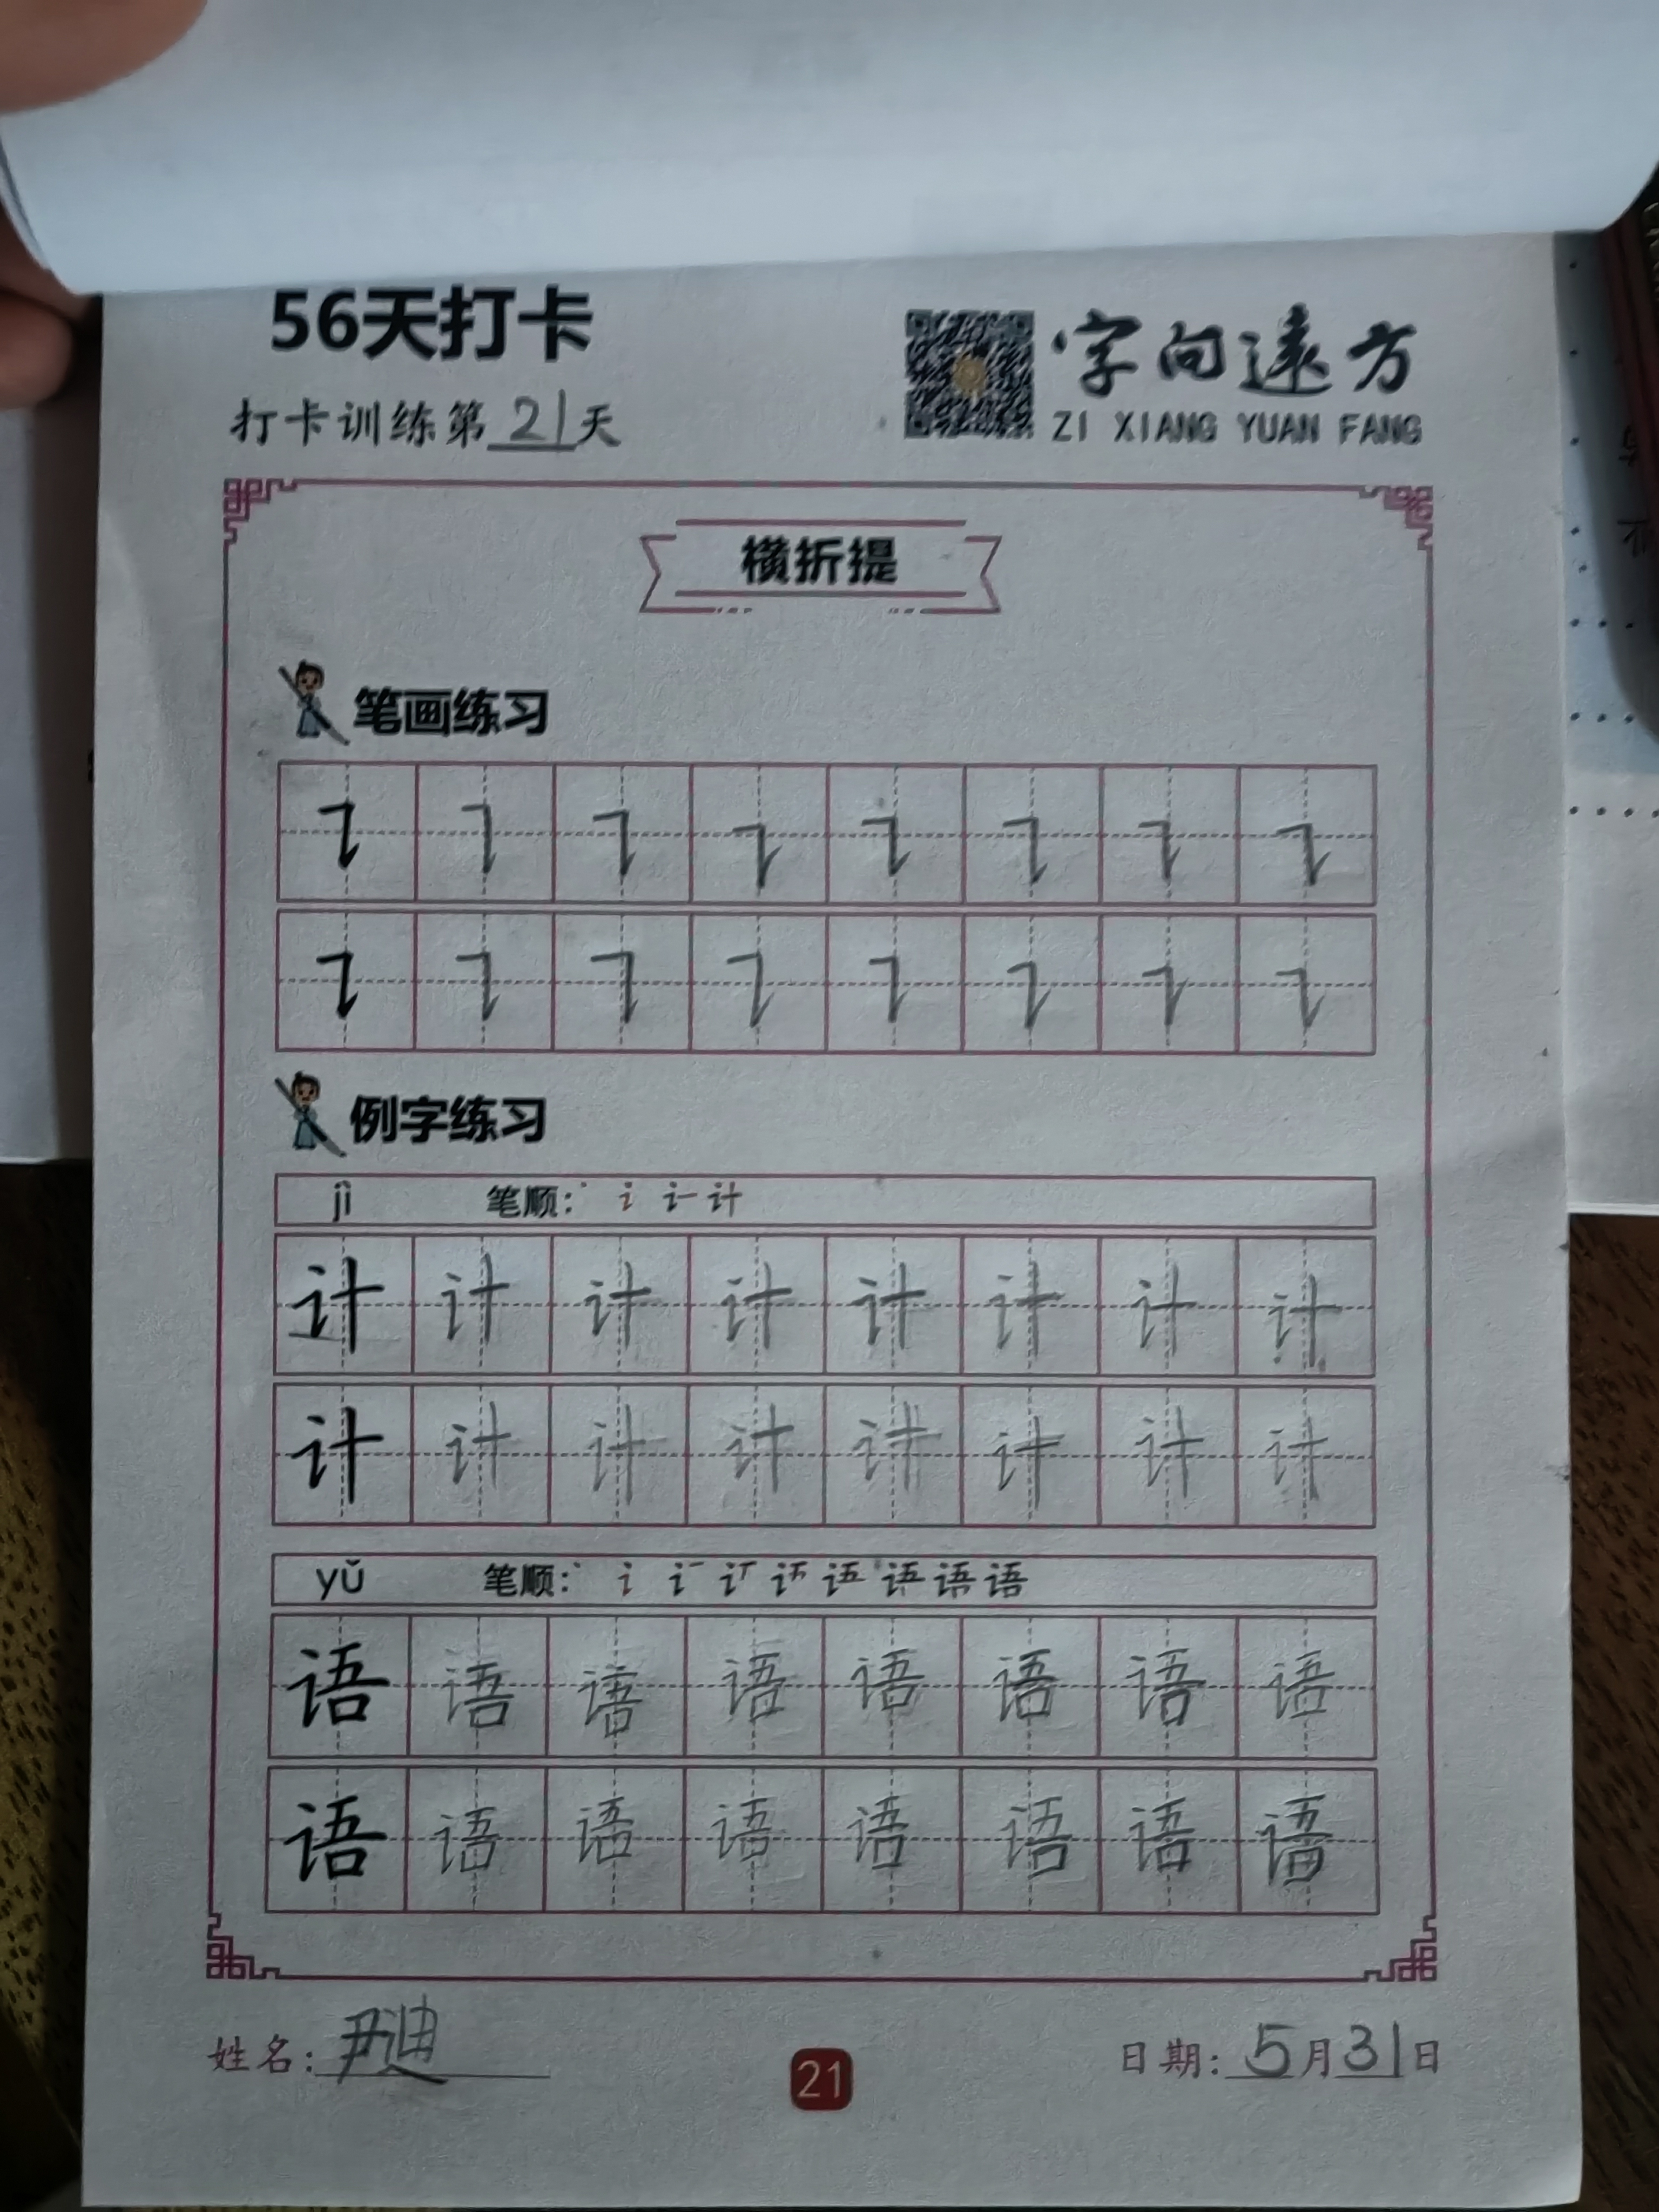 56天打卡
字向远方
打卡训练第21天
ZI XIANG YUAN FANG
横折提
笔画练习
例字练习
jì 笔顺: 计
计 计 计 计 计 计 计 计
计 计 计 计 计 计 计 计
yǔ 笔顺: 语
语 语 语 语 语 语 语 语
语 语 语 语 语 语 语 语
姓名: 尹迪
21
日期: 5月31日